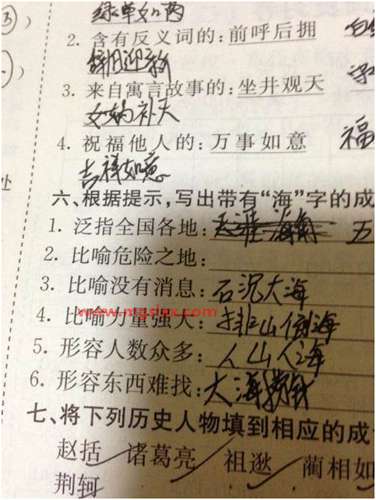 2. 含有反义词的: 前呼后拥
辞旧迎新
3. 来自寓言故事的: 坐井观天
女娲补天
4. 祝福他人的: 万事如意 福
吉祥如意
处
六、根据提示,写出带有“海”字的成
1. 泛指全国各地: 天涯海角 五
2. 比喻危险之地:
3. 比喻没有消息: 石沉大海
4. 比喻力量强大: 排山倒海
5. 形容人数众多: 人山人海
6. 形容东西难找: 大海捞针
七、将下列历史人物填到相应的成
赵括 诸葛亮 祖逖 蔺相如
荆轲